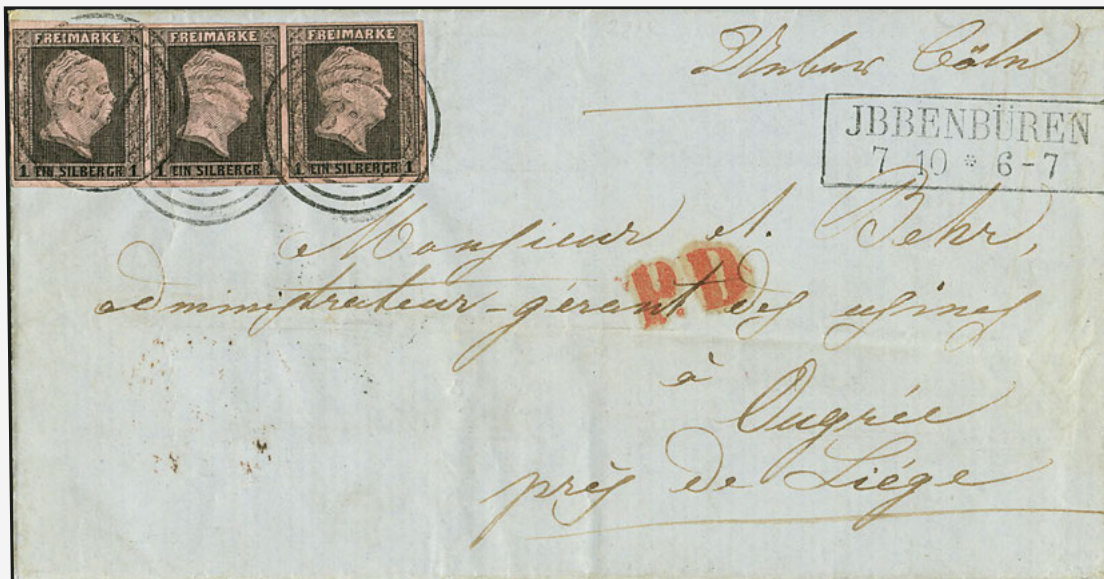 FREIMARKE FREIMARKE FREIMARKE
1 EIN SILBERGR 1 1 EIN SILBERGR 1 1 EIN SILBERGR 1
Cöln
JBBENBÜREN
7 10 * 6-7
Monsieur A. Behr,
administrateur-gérant des usines
P.D
à
Ougrée
près de Liége